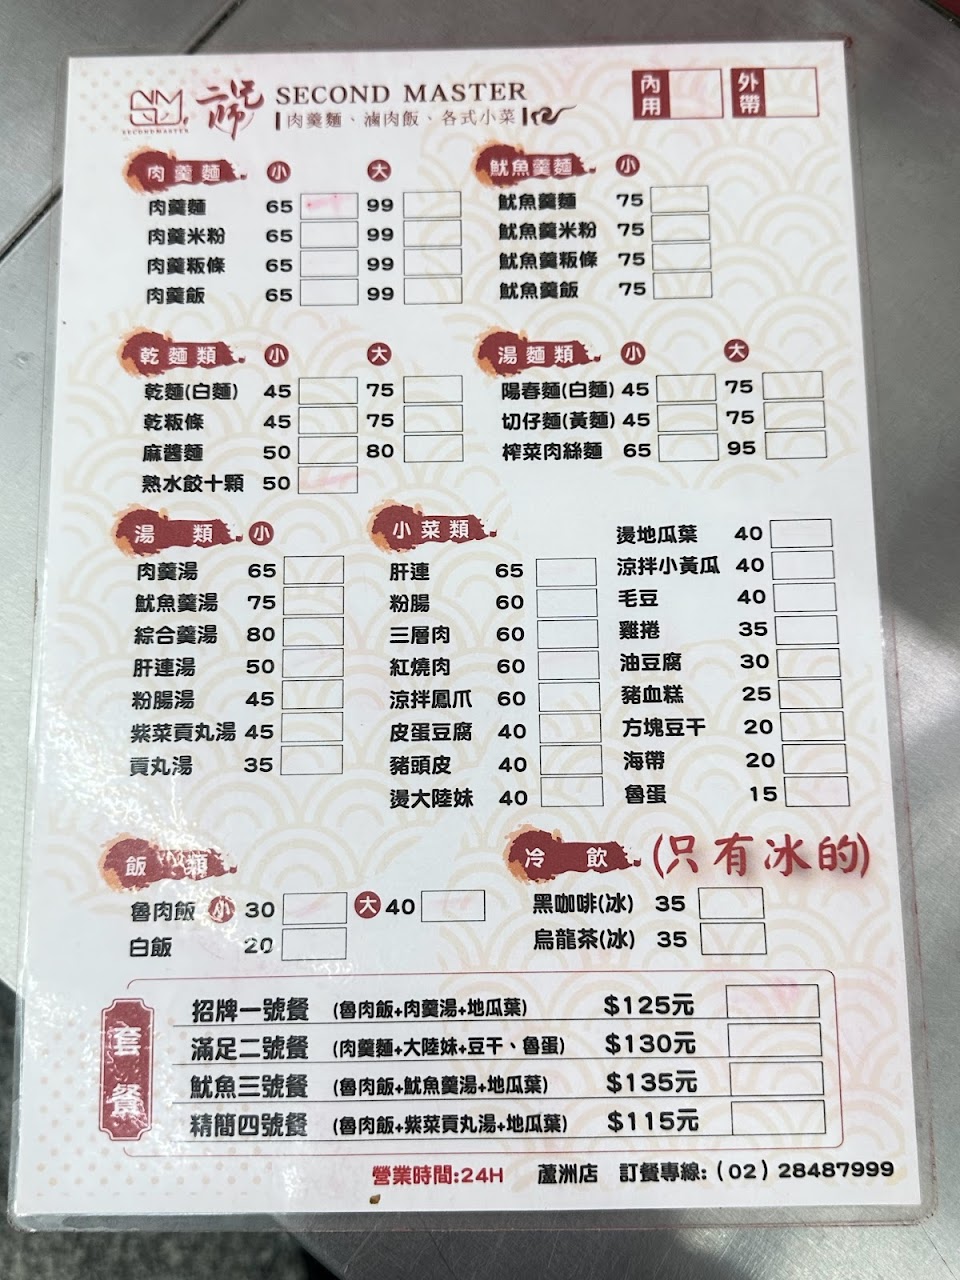 SECONDMASTER
二師兄 SECOND MASTER
肉羹麵、滷肉飯、各式小菜
內用
外帶
肉羹麵 小 大
肉羹麵 65 99
肉羹米粉 65 99
肉羹粄條 65 99
肉羹飯 65 99
魷魚羹麵 小
魷魚羹麵 75
魷魚羹米粉 75
魷魚羹粄條 75
魷魚羹飯 75
乾麵類 小 大
乾麵(白麵) 45 75
乾粄條 45 75
麻醬麵 50 80
熟水餃十顆 50
湯麵類 小 大
陽春麵(白麵) 45 75
切仔麵(黃麵) 45 75
榨菜肉絲麵 65 95
湯類 小
肉羹湯 65
魷魚羹湯 75
綜合羹湯 80
肝連湯 50
粉腸湯 45
紫菜貢丸湯 45
貢丸湯 35
小菜類
肝連 65
粉腸 60
三層肉 60
紅燒肉 60
涼拌鳳爪 60
皮蛋豆腐 40
豬頭皮 40
燙大陸妹 40
燙地瓜葉 40
涼拌小黃瓜 40
毛豆 40
雞捲 35
油豆腐 30
豬血糕 25
方塊豆干 20
海帶 20
魯蛋 15
飯類
魯肉飯 小 30 大 40
白飯 20
冷飲 (只有冰的)
黑咖啡(冰) 35
烏龍茶(冰) 35
套餐
招牌一號餐 (魯肉飯+肉羹湯+地瓜葉) $125元
滿足二號餐 (肉羹麵+大陸妹+豆干、魯蛋) $130元
魷魚三號餐 (魯肉飯+魷魚羹湯+地瓜葉) $135元
精簡四號餐 (魯肉飯+紫菜貢丸湯+地瓜葉) $115元
營業時間:24H 蘆洲店 訂餐專線:(02)28487999